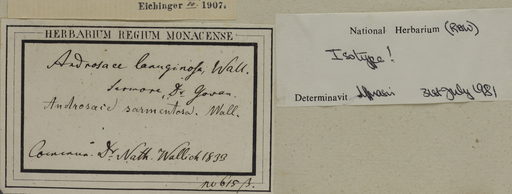 Eichinger 10. 1907.
HERBARIUM REGIUM MONACENSE
Androsace lanuginosa, Wall.
Sirmore, Dr. Govan.
Androsace sarmentosa. Wall.
Dr. Nath. Wallich 1833
no 615 β.
National Herbarium (RBW)
Isotype!
Determinavit 31st July 1981